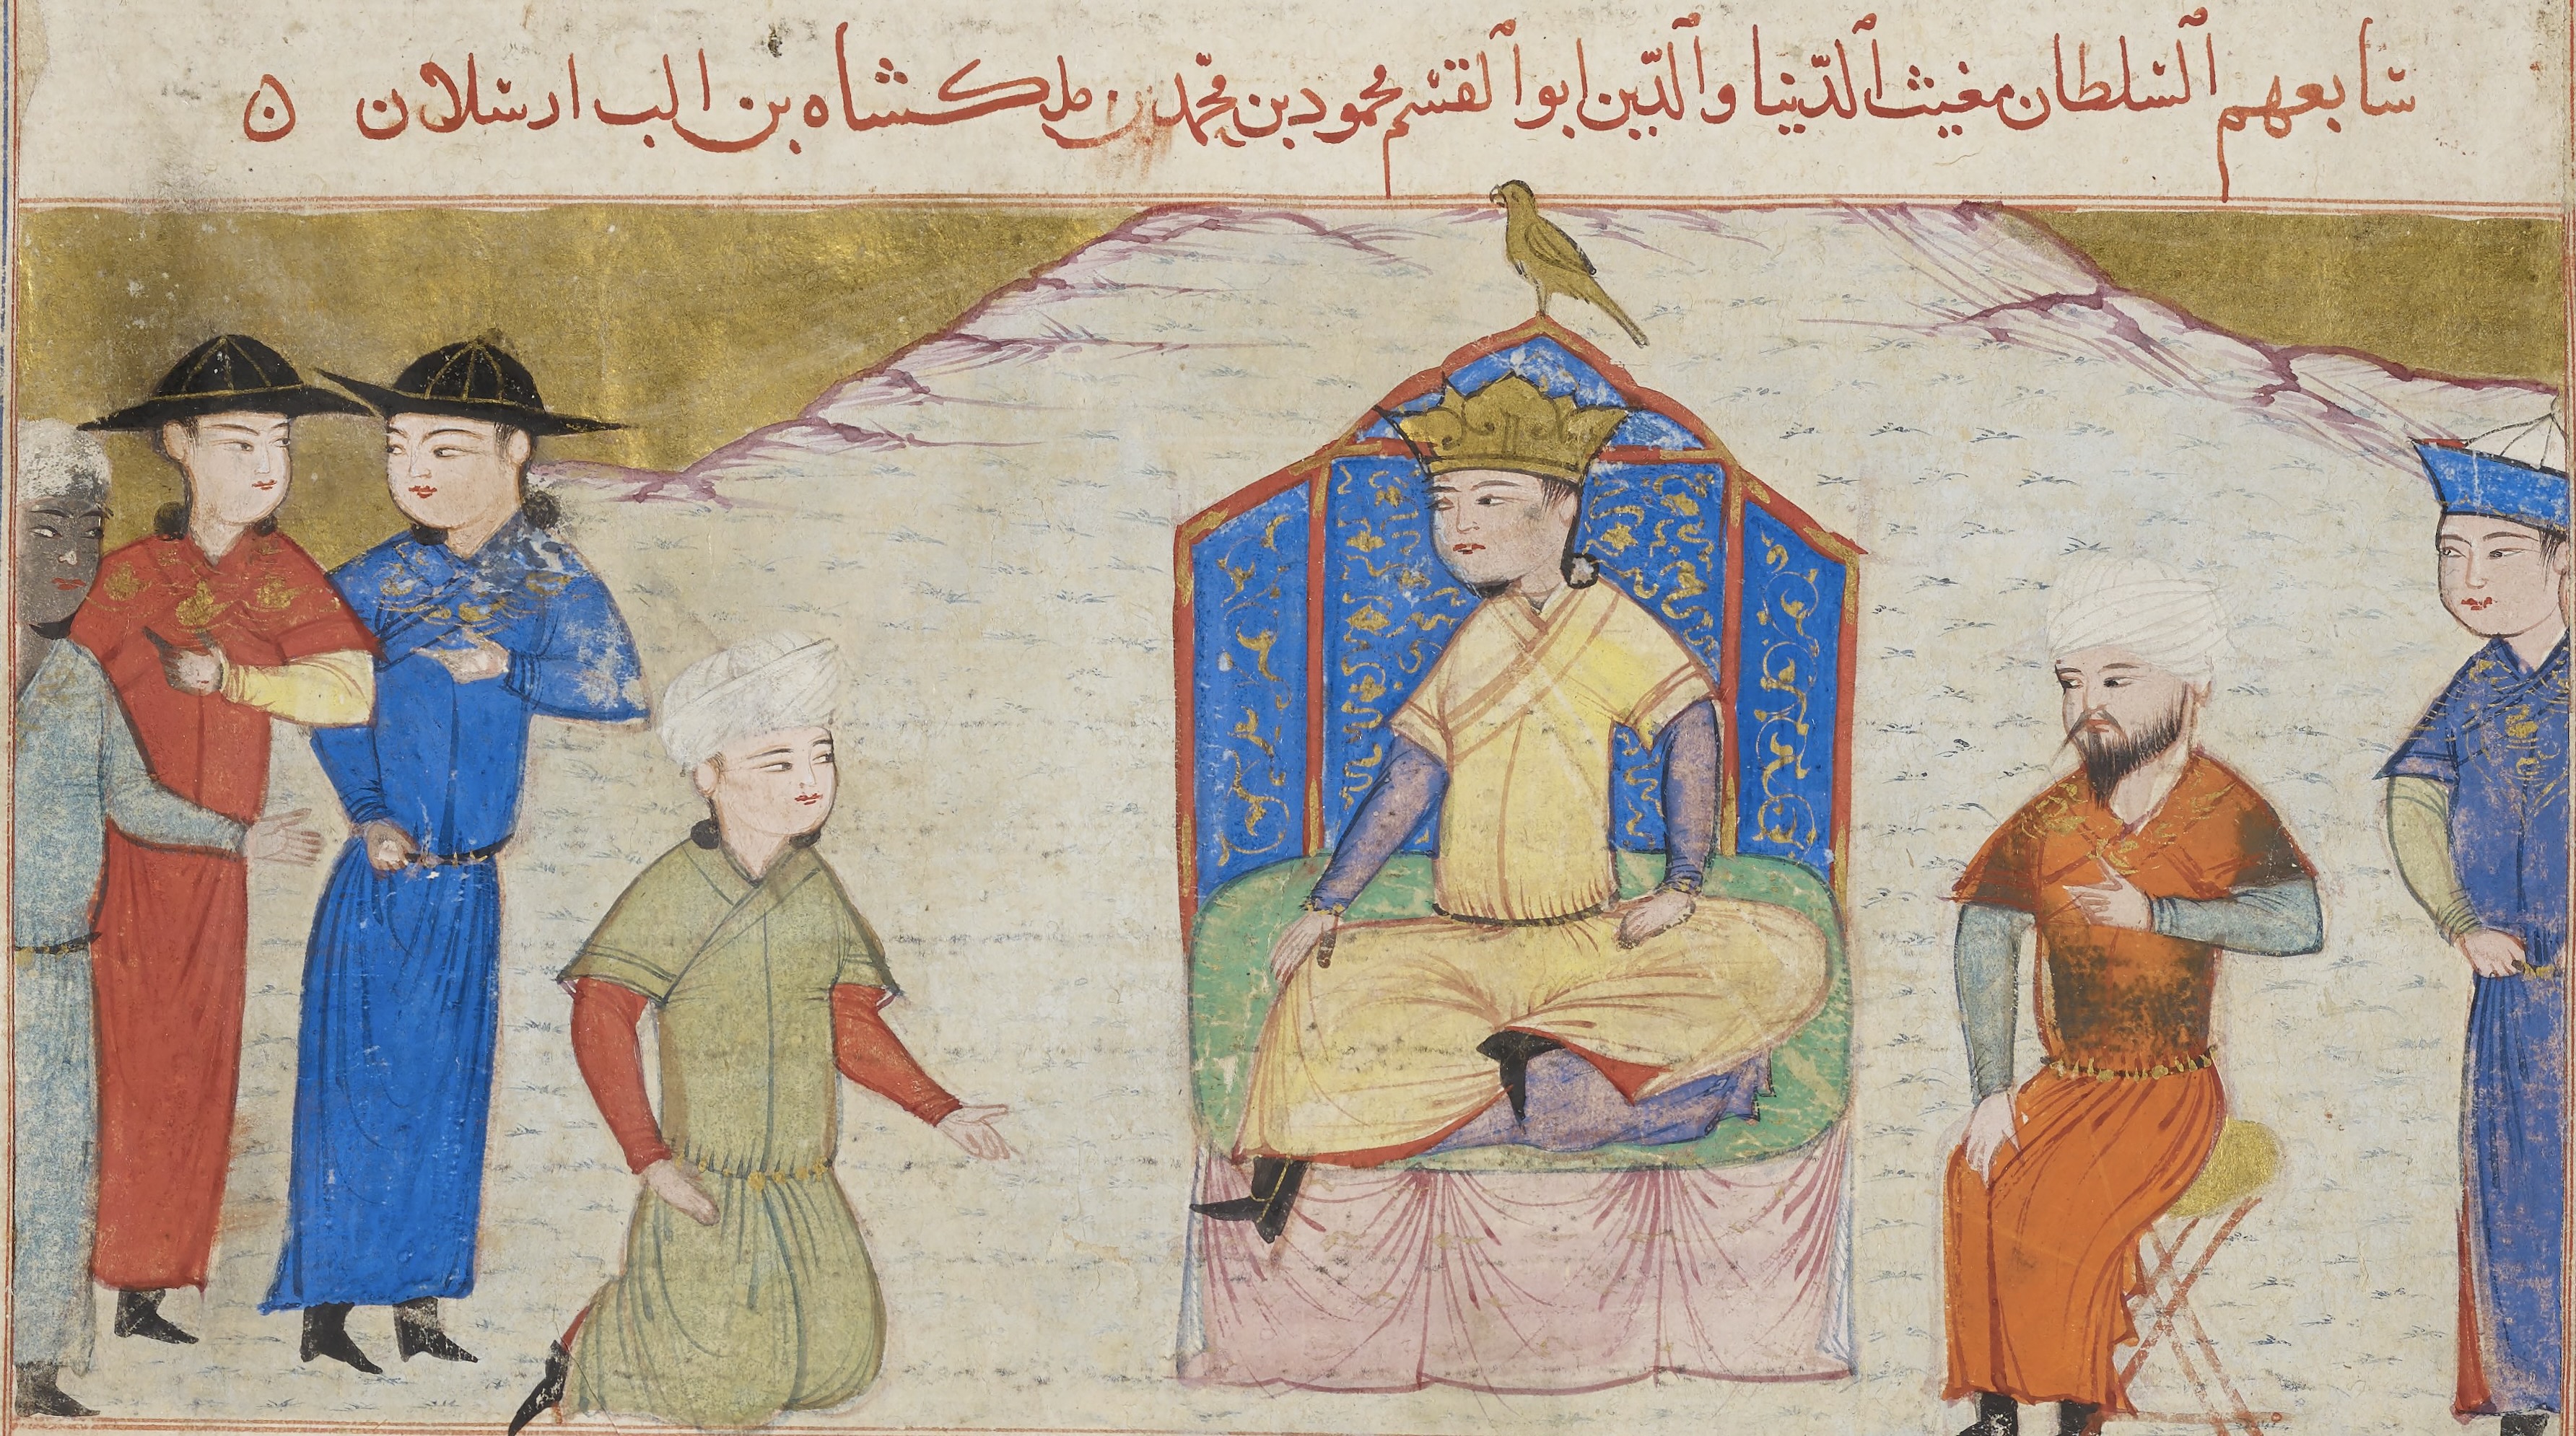 سابعهم السلطان مغيث الدّنيا والدّين ابو القسم محمود بن محمّد بن ملكشاه بن الب ارسلان